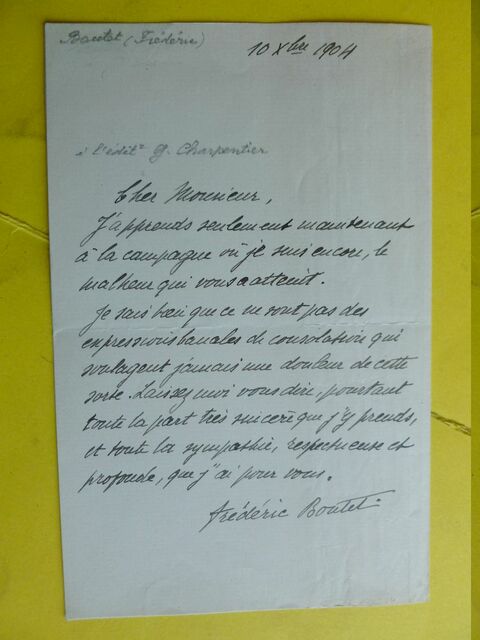 Boutet (Frédéric)
10 Xbre 1904
à l'édit^r G. Charpentier
Cher Monsieur,
J'apprends seulement maintenant
à la campagne où je suis encore, le
malheur qui vous a atteint.
Je sais bien que ce ne sont pas des
expressions banales de consolation qui
soulagent jamais une douleur de cette
sorte. Laissez moi vous dire, pourtant
toute la part très sincère que j'y prends,
et toute la sympathie, respectueuse et
profonde, que j'ai pour vous.
Frédéric Boutet.